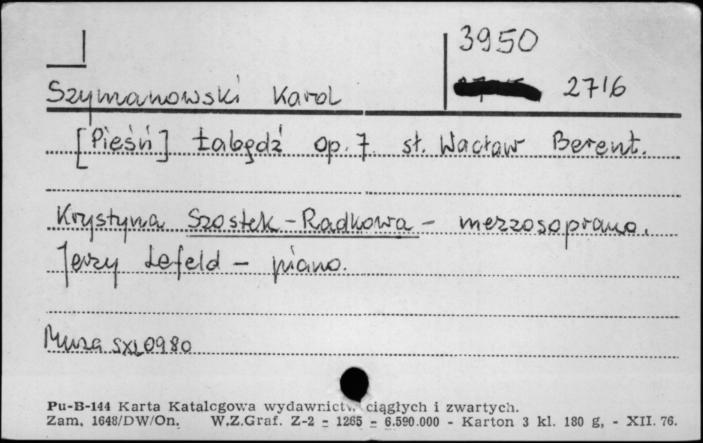 3950
2716
Szymanowski Karol
[Pieśń] Łabędź op. 7. sł. Wacław Berent.
Krystyna Szostek-Radkowa - mezzosoprano.
Jerzy Lefeld - piano.
Muza SXL0980
Pu-B-144 Karta Katalogowa wydawnictw ciągłych i zwartych.
Zam. 1648/DW/On. W.Z.Graf. Z-2 = 1265 = 6.590.000 - Karton 3 kl. 180 g, - XII. 76.